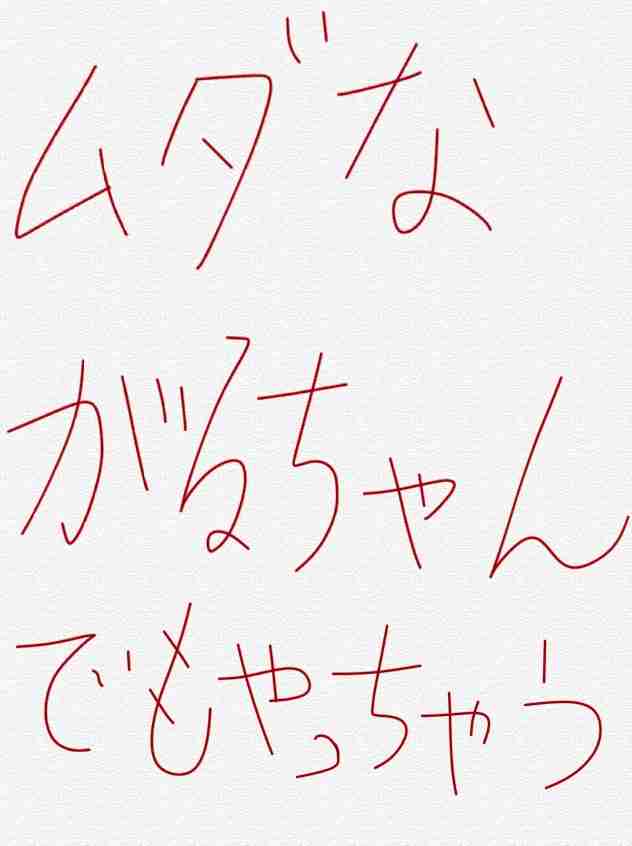 ムダな
がるちゃん
でもやっちゃう